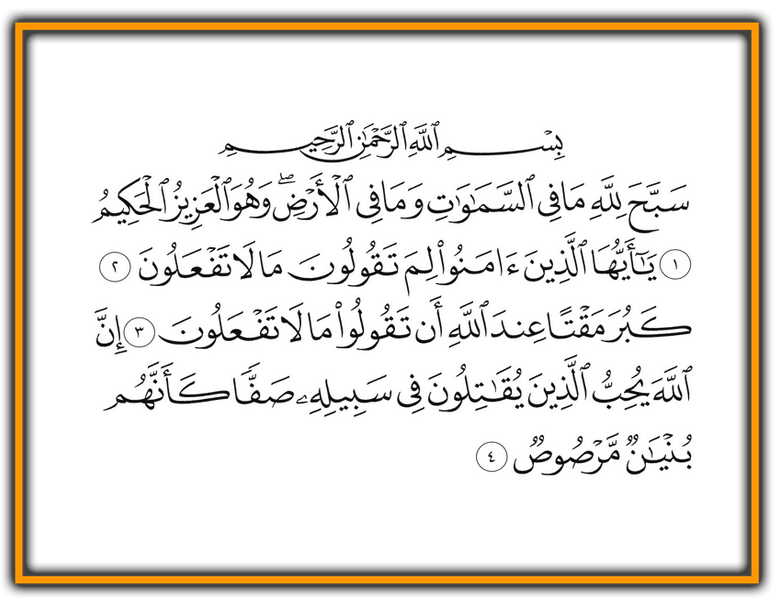 بِسْمِ ٱللَّهِ ٱلرَّحْمَٰنِ ٱلرَّحِيمِ
سَبَّحَ لِلَّهِ مَا فِى ٱلسَّمَٰوَٰتِ وَمَا فِى ٱلْأَرْضِ ۖ وَهُوَ ٱلْعَزِيزُ ٱلْحَكِيمُ
١ يَٰٓأَيُّهَا ٱلَّذِينَ ءَامَنُوا۟ لِمَ تَقُولُونَ مَا لَا تَفْعَلُونَ ٢
كَبُرَ مَقْتًا عِندَ ٱللَّهِ أَن تَقُولُوا۟ مَا لَا تَفْعَلُونَ ٣ إِنَّ
ٱللَّهَ يُحِبُّ ٱلَّذِينَ يُقَٰتِلُونَ فِى سَبِيلِهِۦ صَفًّا كَأَنَّهُم
بُنْيَٰنٌ مَّرْصُوصٌ ٤